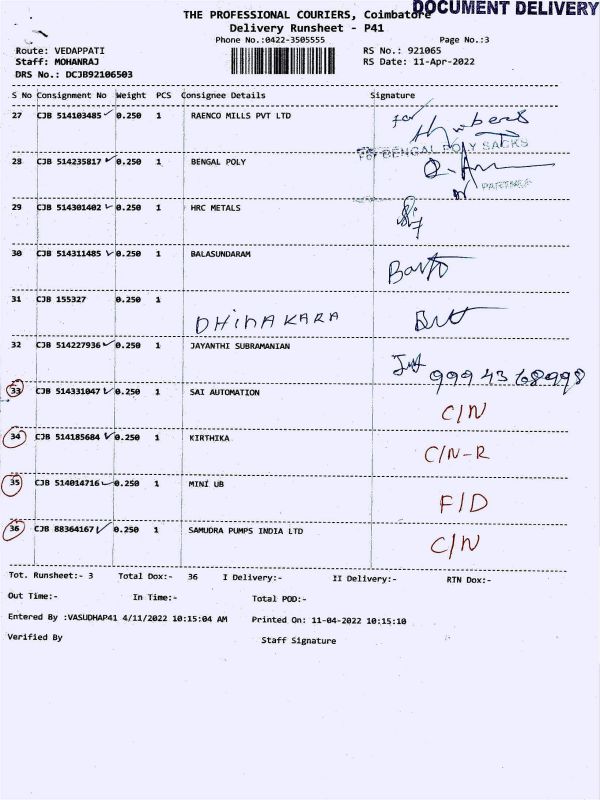 DOCUMENT DELIVERY
THE PROFESSIONAL COURIERS, Coimbatore
Delivery Runsheet - P41
Phone No.:0422-3505555
Page No.:3
Route: VEDAPPATI
RS No.: 921065
Staff: MOHANRAJ
RS Date: 11-Apr-2022
DRS No.: DCJB92106503
S No Consignment No Weight PCS Consignee Details Signature
27 CJB 514103485 0.250 1 RAENCO MILLS PVT LTD for
For BENGAL POLY SACKS
28 CJB 514235817 0.250 1 BENGAL POLY
29 CJB 514301402 0.250 1 HRC METALS
30 CJB 514311485 0.250 1 BALASUNDARAM
31 CJB 155327 0.250 1
DHINAKARA
32 CJB 514227936 0.250 1 JAYANTHI SUBRAMANIAN
9994368998
33 CJB 514331047 0.250 1 SAI AUTOMATION
C/N
34 CJB 514185684 0.250 1 KIRTHIKA
C/N-R
35 CJB 514014716 0.250 1 MINI UB
F/D
36 CJB 88364167 0.250 1 SAMUDRA PUMPS INDIA LTD
C/N
Tot. Runsheet:- 3 Total Dox:- 36 I Delivery:- II Delivery:- RTN Dox:-
Out Time:- In Time:- Total POD:-
Entered By :VASUDHAP41 4/11/2022 10:15:04 AM Printed On: 11-04-2022 10:15:10
Verified By Staff Signature